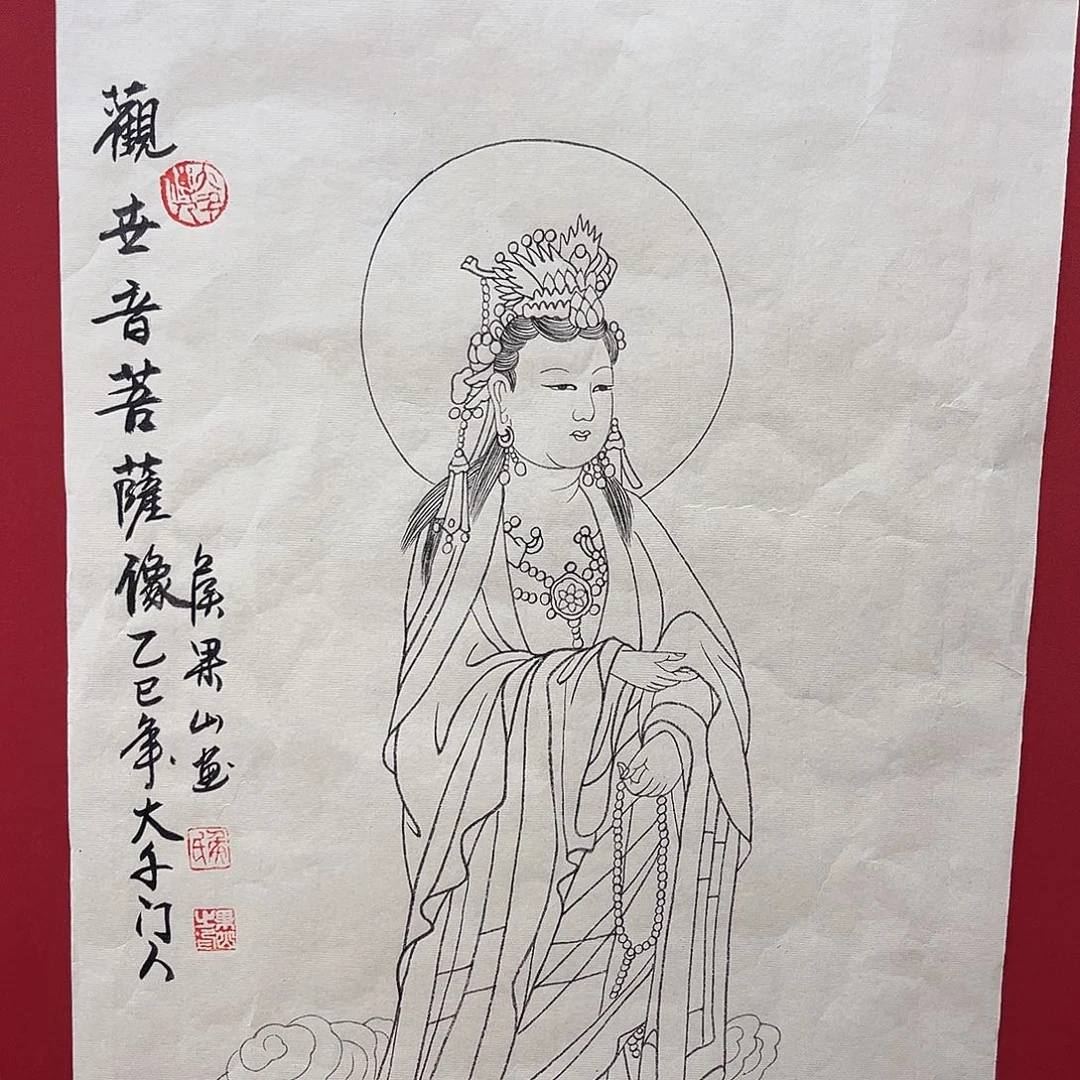 觀世音菩薩像乙巳年大千门人
侯果山画
侯氏